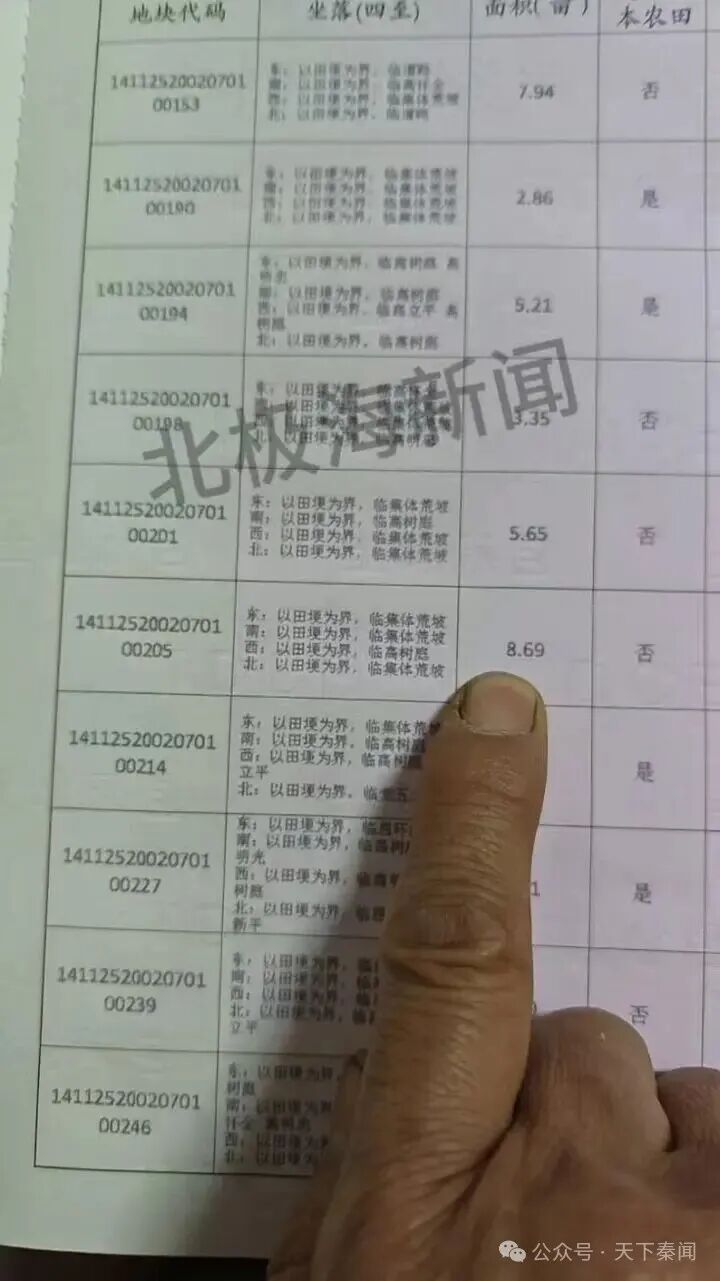 地块代码
坐落(四至)
面积(亩)
本农田
14112520020701
00153
东：以田埂为界，临道路
南：以田埂为界，临高仟全
西：以田埂为界，临集体荒坡
北：以田埂为界，临道路
7.94
否
14112520020701
00190
东：以田埂为界，临集体荒坡
南：以田埂为界，临集体荒坡
西：以田埂为界，临集体荒坡
北：以田埂为界，临集体荒坡
2.86
是
14112520020701
00194
东：以田埂为界，临高树庭 高
明忠
南：以田埂为界，临高树庭
西：以田埂为界，临高立平 高
树庭
北：以田埂为界，临高树庭
5.21
是
14112520020701
00198
东：以田埂为界，
以田埂为界，
以田埂为界，
北：以田埂为界，
3.35
否
北极海新闻
14112520020701
00201
东：以田埂为界，临集体荒坡
南：以田埂为界，临高树庭
西：以田埂为界，临集体荒坡
北：以田埂为界，临集体荒坡
5.65
否
14112520020701
00205
东：以田埂为界，临集体荒坡
南：以田埂为界，临集体荒坡
西：以田埂为界，临高树庭
北：以田埂为界，临集体荒坡
8.69
否
14112520020701
00214
东：以田埂为界，临集体荒坡
南：以田埂为界，临高树庭
西：以田埂为界，临高树庭
立平
北：以田埂为界，临
是
14112520020701
00227
东：以田埂为界，临
南：以田埂为界，临高树
明光
西：以田埂为界，临高
树庭
北：以田埂为界，临
新平
1
是
14112520020701
00239
东：以田埂为界，临
南：以田埂为界，临
西：以田埂为界，临
北：以田埂为界，临
立平
否
14112520020701
00246
东：以田埂为界，
树庭
南：以田埂为界
仟全 高明忠
西：以田埂为界
北：以田埂为
公众号 · 天下秦闻